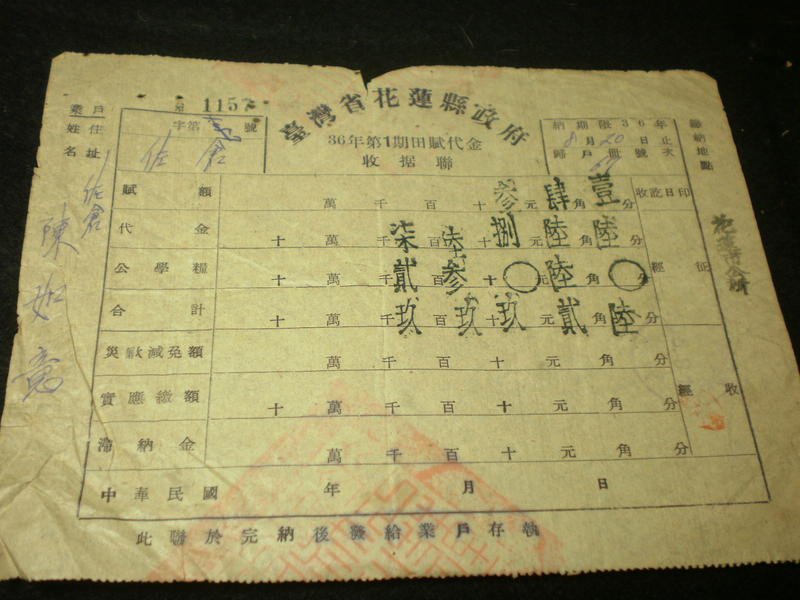 臺灣省花蓮縣政府
36年第1期田賦代金
收据聯
1157
字第 號
佐倉
業戶
姓名
住址
佐倉
陳如意
納期限36年
8月20日止
歸戶冊號次
繳納地點
賦額 萬千百十元角分 收訖日印
參肆壹
代金 十萬千百十元角分
柒陸捌陸陸
公學糧 十萬千百十元角分 經征
貳參〇陸〇
合計 十萬千百十元角分
玖玖玖貳陸
災歉減免額 萬千百十元角分
實應繳額 十萬千百十元角分 經收
滯納金 萬千百十元角分
中華民國 年 月 日
此聯於完納後發給業戶存執